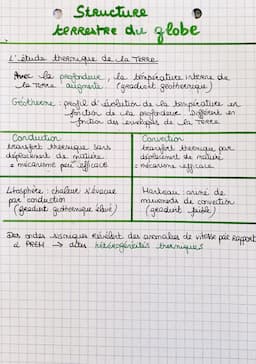 Structure
terrestre du globe
L'étude thermique de la Terre
Avec la profondeur, la température interne de
la Terre augmente. (gradient géothermique)
Géotherme : profil d'évolution de la température en
fonction de la profondeur. Différent en
fonction des enveloppes de la Terre.
Conduction
transfert thermique sans
déplacement de matière
= mécanisme peu efficace
Convection
transfert thermique par
déplacement de matière
= mécanisme efficace
Lithosphère : chaleur s'évacue
par conduction
(gradient géothermique élevé)
Manteau : animé de
mouvements de convection
(gradient faible)
Des ondes sismiques révèlent des anomalies de vitesse par rapport
à PREM → dites hétérogénéités thermiques